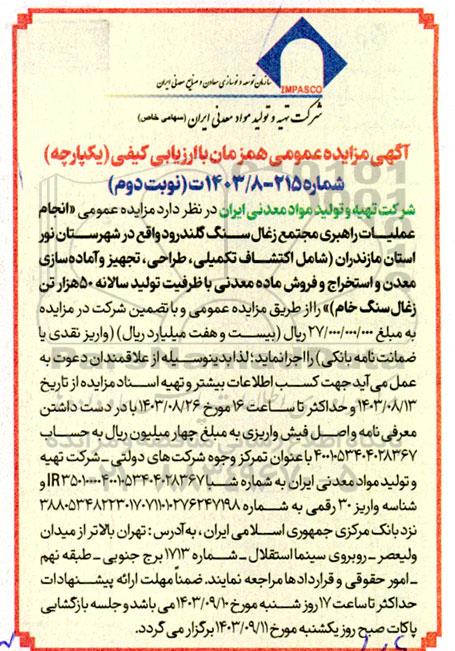 IMPASCO
سازمان توسعه و نوسازی معادن و صنایع معدنی ایران
شرکت تهیه و تولید مواد معدنی ایران (سهامی خاص)
آگهی مزایده عمومی همزمان با ارزیابی کیفی (یکپارچه)
شماره ۲۱۵-۱۴۰۳/۸ت (نوبت دوم)
شرکت تهیه و تولید مواد معدنی ایران در نظر دارد مزایده عمومی «انجام
عملیات راهبری مجتمع زغال سنگ گلندرود واقع در شهرستان نور
استان مازندران (شامل اکتشاف تکمیلی، طراحی، تجهیز و آماده سازی
معدن و استخراج و فروش ماده معدنی با ظرفیت تولید سالانه ۵۰هزار تن
زغال سنگ خام)» را از طریق مزایده عمومی و با تضمین شرکت در مزایده
به مبلغ ۲۷/۰۰۰/۰۰۰/۰۰۰ ریال (بیست و هفت میلیارد ریال) (واریز نقدی یا
ضمانت نامه بانکی) را اجرا نماید؛ لذا بدینوسیله از علاقمندان دعوت به
عمل می آید جهت کسب اطلاعات بیشتر و تهیه اسناد مزایده از تاریخ
۱۴۰۳/۰۸/۱۳ و حداکثر تا ساعت ۱۶ مورخ ۱۴۰۳/۰۸/۲۶ با در دست داشتن
معرفی نامه و اصل فیش واریزی به مبلغ چهار میلیون ریال به حساب
۴۰۰۱۰۵۳۴۰۴۰۲۸۳۶۷ با عنوان تمرکز وجوه شرکت های دولتی ــ شرکت تهیه
و تولید مواد معدنی ایران به شماره شبا IR۳۵۰۱۰۰۰۰۴۰۰۱۰۵۳۴۰۴۰۲۸۳۶۷ و
شناسه واریز ۳۰ رقمی به شماره ۳۸۸۰۵۳۴۸۲۲۳۰۱۷۰۷۱۱۰۱۰۲۷۶۲۴۷۱۹۸
نزد بانک مرکزی جمهوری اسلامی ایران، به آدرس: تهران بالاتر از میدان
ولیعصر ــ روبروی سینما استقلال ــ شماره ۱۷۱۳ برج جنوبی ــ طبقه نهم
ــ امور حقوقی و قراردادها مراجعه نمایند. ضمناً مهلت ارائه پیشنهادات
حداکثر تا ساعت ۱۷ روز شنبه مورخ ۱۴۰۳/۰۹/۱۰ می باشد و جلسه بازگشایی
پاکات صبح روز یکشنبه مورخ ۱۴۰۳/۰۹/۱۱ برگزار می گردد.